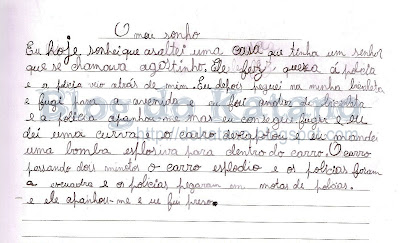 O meu sonho
Eu hoje sonhei que assaltei uma casa que tinha um senhor
que se chamava agostinho. Ele fez queixa á polícia
e a polícia vio atrás de mim. Eu depois peguei na minha bicicleta
e fugi para a avenida e fui andar de bicicleta
e a polícia apanhou-me mas eu consegui fugir e eu
dei uma curva e o carro derrapou e eu mandei
uma bomba esplosiva para dentro do carro. O carro
passando dois minutos o carro esplodio e os polícias foram
a escuadra e os polícias pegaram em motas de polícias.
e ele apanhou-me e eu fui preso.